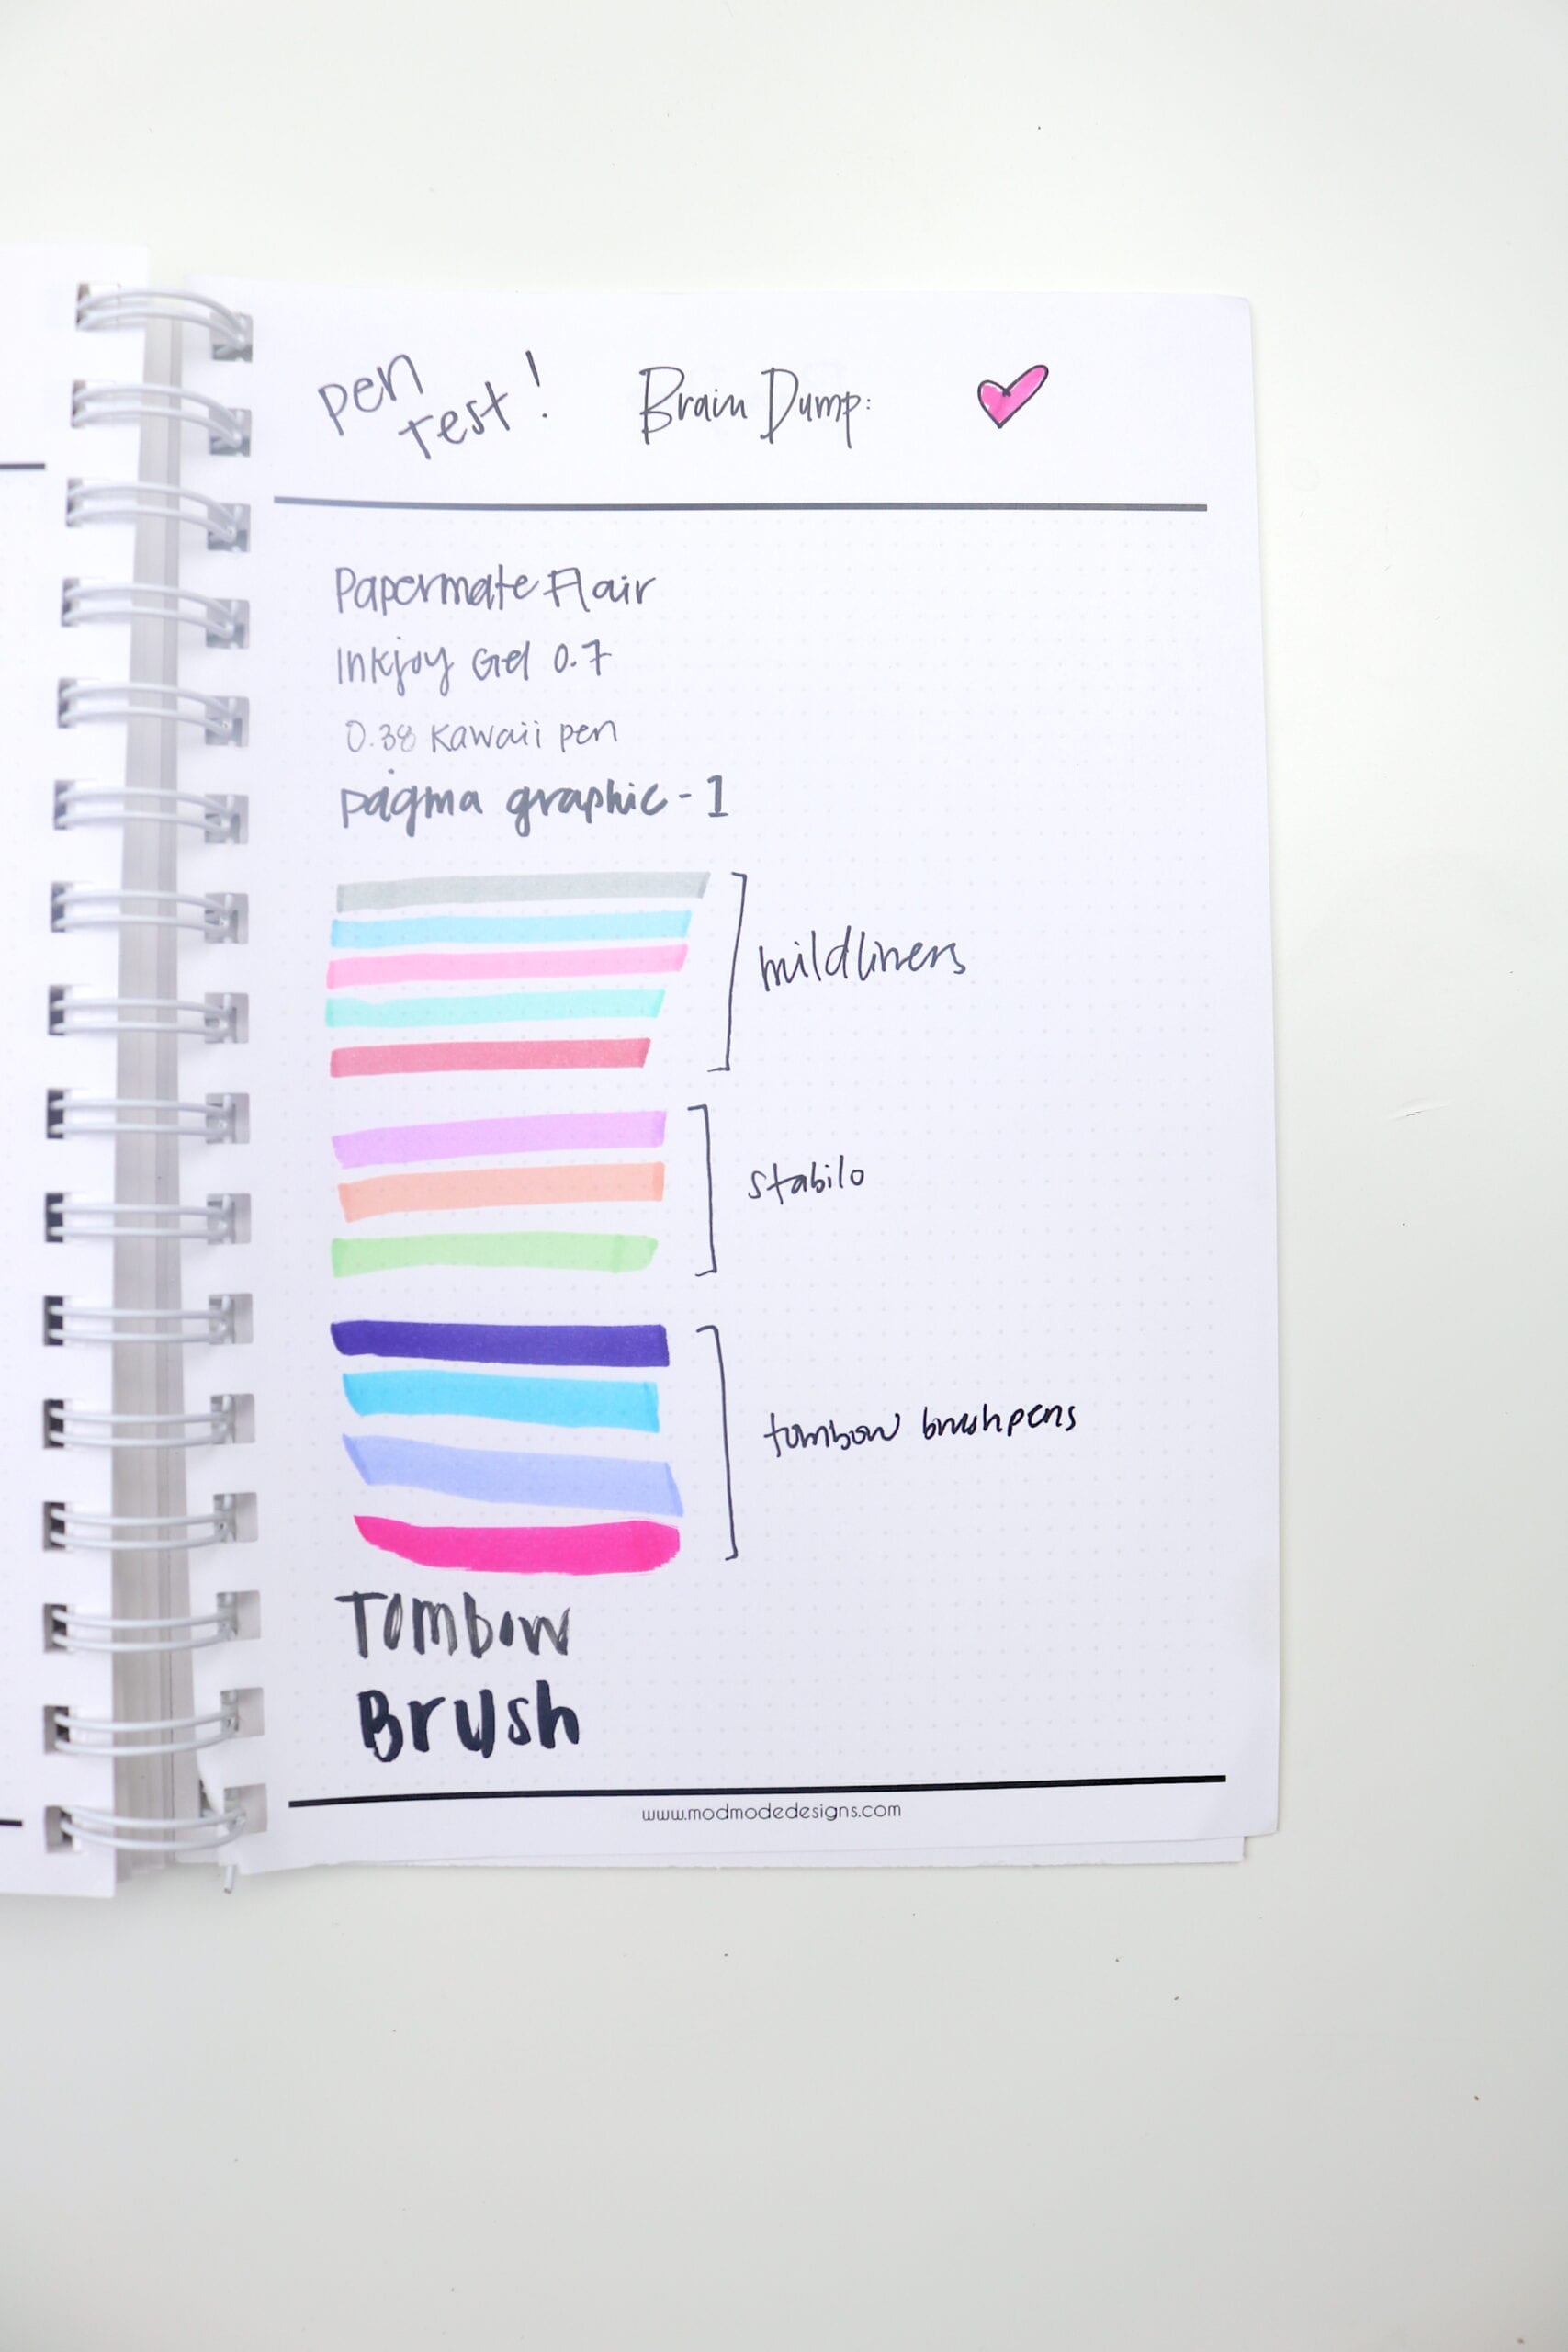 pen
test!
Brain Dump:
Papermate Flair
Inkjoy Gel 0.7
0.38 Kawaii pen
pagma graphic - 1
mildliners
stabilo
tombow brushpens
Tombow
Brush
www.modmodedesigns.com